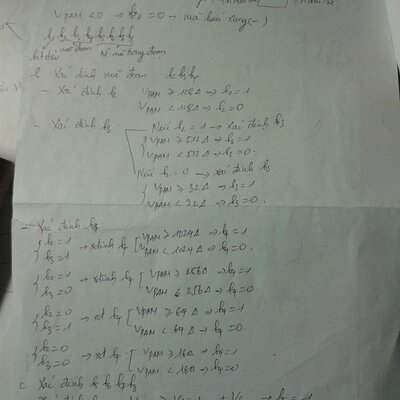 V_PAM < 0 → b₁ = 0 → mã hoá xung (-)
b₁ b₂ b₃ b₄ b₅ b₆ b₇ b₈
bit dấu mã đoạn № mã trong đoạn
b, Xác định mã đoạn b₂ b₃ b₄
- Xác định b₂ V_PAM ≥ 128Δ → b₂ = 1
V_PAM < 128Δ → b₂ = 0
- Xác định b₃ Nếu b₂ = 1 → Xác định b₃
V_PAM ≥ 512Δ → b₃ = 1
V_PAM < 512Δ → b₃ = 0
Nếu b₂ = 0 → xác định b₃
V_PAM ≥ 32Δ → b₃ = 1
V_PAM < 32Δ → b₃ = 0
- Xác định b₄
b₂ = 1 → xđịnh b₄ V_PAM ≥ 1024Δ → b₄ = 1
b₃ = 1 V_PAM < 1024Δ → b₄ = 0
b₂ = 1 → xđịnh b₄ V_PAM ≥ 256Δ → b₄ = 1
b₃ = 0 V_PAM < 256Δ → b₄ = 0
b₂ = 0 → xđ b₄ V_PAM ≥ 64Δ → b₄ = 1
b₃ = 1 V_PAM < 64Δ → b₄ = 0
b₂ = 0 → xđ b₄ V_PAM ≥ 16Δ → b₄ = 1
b₃ = 0 V_PAM < 16Δ → b₄ = 0
c. Xác định b₅ b₆ b₇ b₈